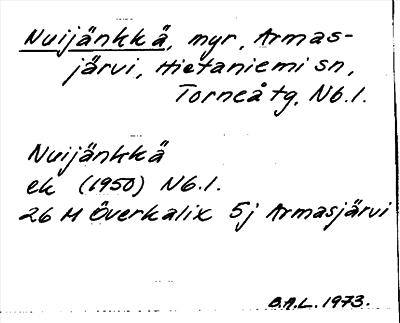 Nuijänkkä, myr, Armas-
järvi, Hietaniemi sn,
Torneå tg, Nb.l.
Nuijänkkä
ek (1950) Nb.l.
26 M Överkalix 5j Armasjärvi
B.A.L. 1973.